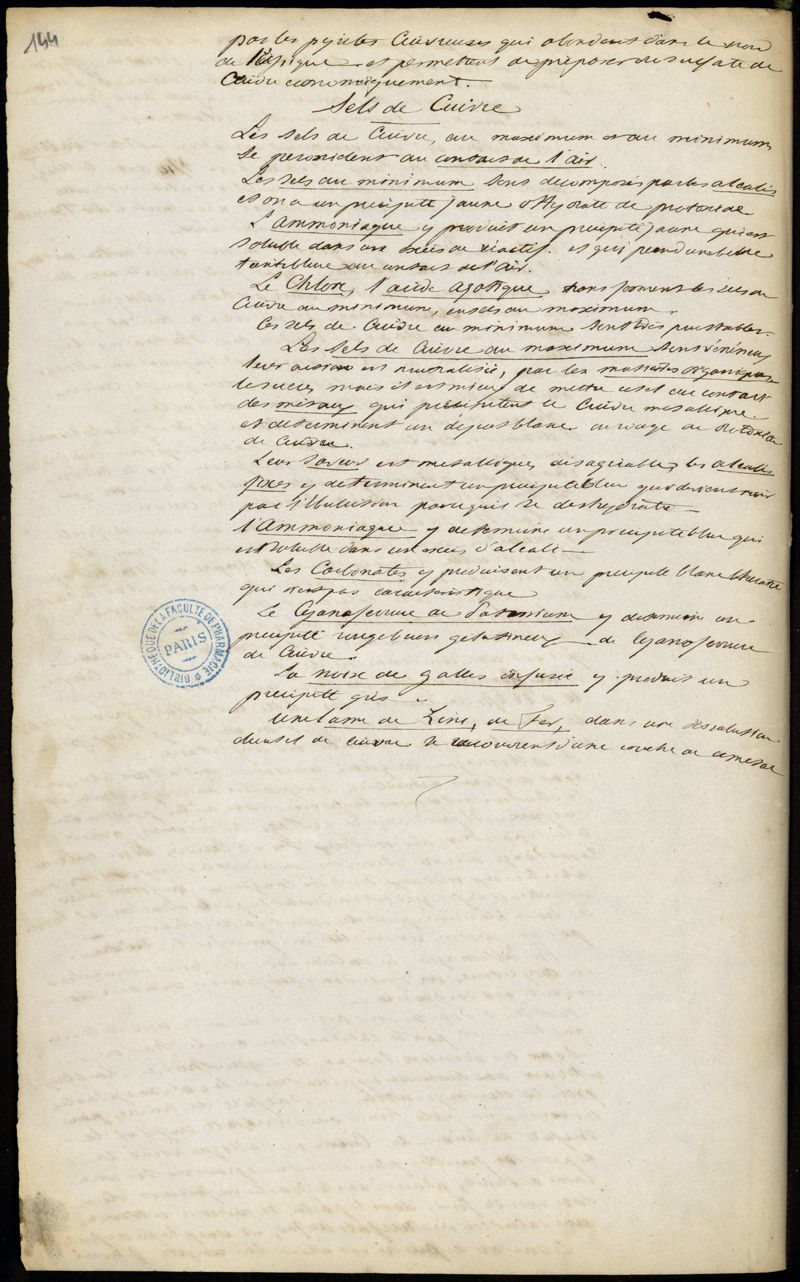 144
par les pyrites Cuivreuses qui abondent dans le nord
de l'Afrique et permettent de préparer du sulfate de
Cuivre economiquement.
Sels de Cuivre
Les sels de Cuivre, au maximum et au minimum,
se peroxident au contact de l'air.
Les sels au minimum sont decomposés par les alcalis
et on a un precipité jaune d'Hydrate de protoxide
L'Ammoniaque y produit un precipité jaune qui est
soluble dans un excès de réactif. et qui prend une belle
teinte bleue au contact de l'air.
Le Chlore, l'acide azotique transforment les sels de
Cuivre au minimum, en sels au maximum.
Ces sels de Cuivre au minimum sont très peu stables.
Les Sels de Cuivre au maximum sont vénéneux
leur action est neutralisée, par les matières organiques
le sucre, mais il est mieux de mettre ce sel au contact
des métaux qui precipitent le Cuivre metallique
et determinent un dépot blanc ou rouge de
de Cuivre.
Leur Saveur est metallique, désagréable, les alcalis
fixes y determinent un precipité bleu qui devient noir
par l'ébulution parcequ'il se deshydrate
l'Ammoniaque y determine un precipité bleu qui
est soluble dans un excès d'alcali
Les Carbonates y produisent un precipité blanc bleuatre
qui n'est pas caracteristique
Le Cyanoferrure de Potassium y determine un
precipité rouge brun gelatineux de Cyanoferrure
de Cuivre.
La noix de galles infusée y produit un
precipité gris
Une lame de Zinc, de Fer, dans une dissolution
d'un sel de cuivre se recouvrent d'une couche de ce metal
BIBLIOTHÈQUE DE LA FACULTÉ DE PHARMACIE
PARIS